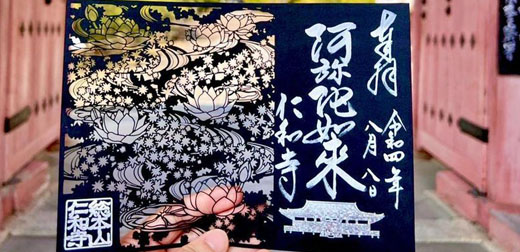 奉拝
令和四年
八月八日
阿弥陀如来
仁和寺
総本山
仁和寺